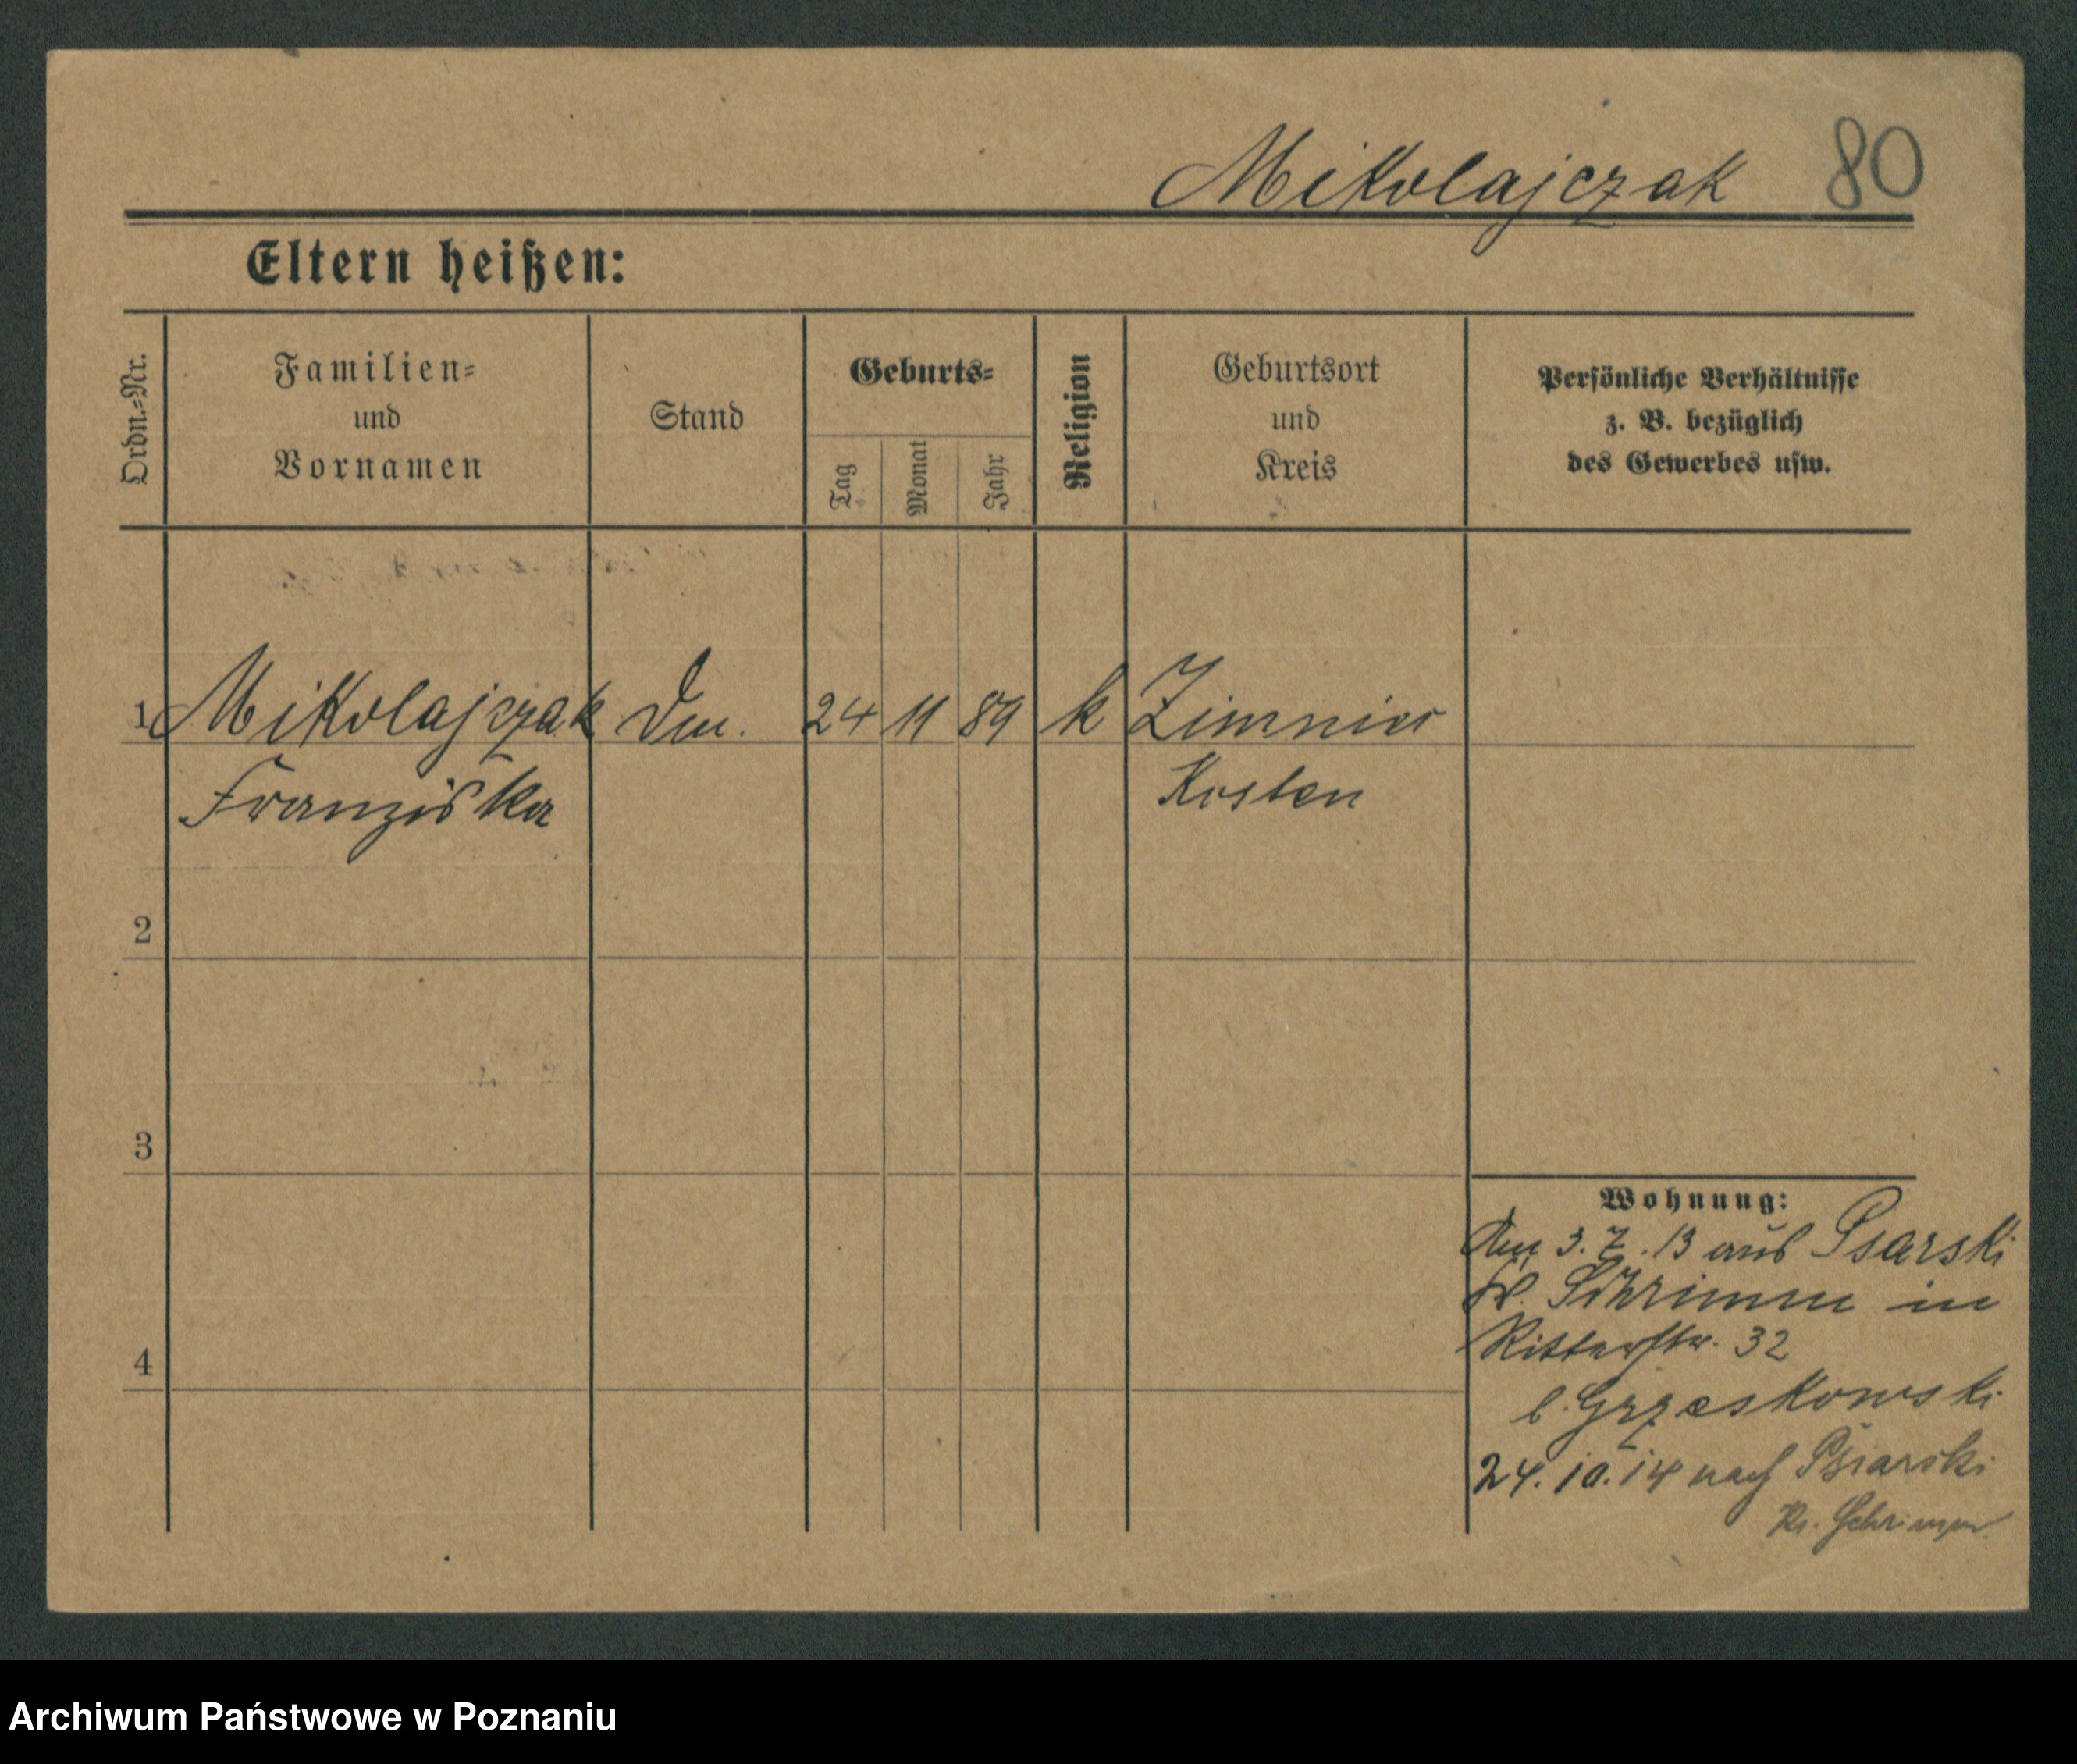 Mikolajczak 80
Eltern heißen:
Ordn.-Nr.
Familien-
und
Vornamen
Stand
Geburts-
Tag
Monat
Jahr
Religion
Geburtsort
und
Kreis
Persönliche Verhältnisse
z. B. bezüglich
des Gewerbes usw.
1 Mikolajczak 24 11 89 k
Franziska Kosten
2
3
4
Wohnung:
3.7.13 aus Psarski
Schrimm in
Ritterstr. 32
b. Grzeskowski
24.10.14 nach Psiarski
Kr. Schrimm
Archiwum Państwowe w Poznaniu